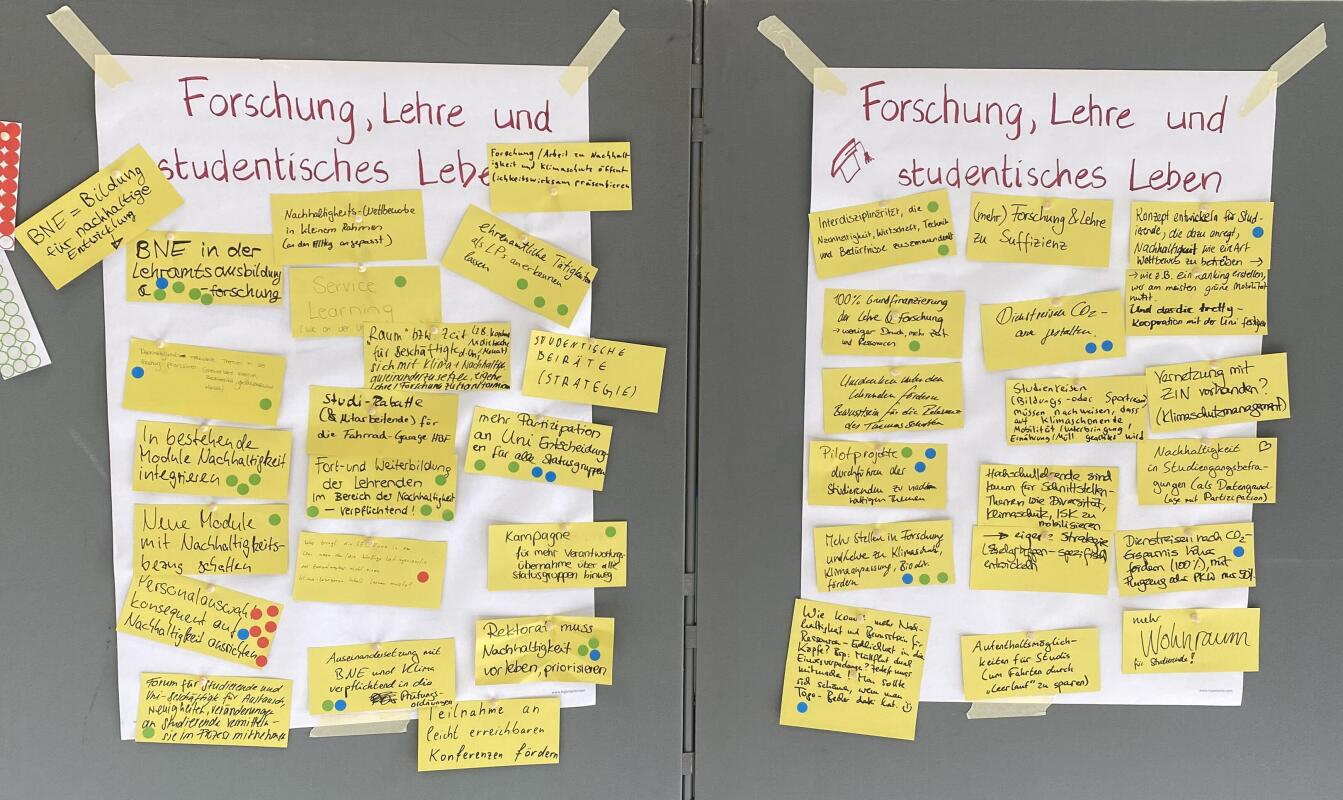 Forschung, Lehre und
studentisches Lebe
BNE = Bildung
für nachhaltige
Entwicklung
Forschung/Arbeit zu Nachhalt-
igkeit und Klimaschutz öffent
lichkeitswirksam präsentieren
BNE in der
Lehramtsausbildung
& -forschung
Nachhaltigkeits-Wettbewerbe
in kleinem Rahmen
(an den Alltag angepasst)
ehrenamtliche Tätigkeiten
als LPs anerkennen
lassen
Service
Learning
Raum bzw. Zeit
für Beschäftigte
sich mit Klima + Nachhaltigk.
auseinanderzusetzen, eigene
Lehre/Forschung zu transformieren
STUDENTISCHE
BEIRÄTE
(STRATEGIE)
Studi-Rabatte
(& Mitarbeitende) für
die Fahrrad-Garage HBF
mehr Partizipation
an Uni Entscheidung-
en für alle Statusgruppen
In bestehende
Module Nachhaltigkeit
integrieren
Fort- und Weiterbildung
der Lehrenden
im Bereich der Nachhaltigkeit
– verpflichtend!
Neue Module
mit Nachhaltigkeits-
bezug schaffen
Kampagne
für mehr Verantwortungs-
übernahme über alle
Statusgruppen hinweg
Personalauswahl
konsequent auf
Nachhaltigkeit ausrichten
Rektorat muss
Nachhaltigkeit
vorleben, priorisieren
Auseinandersetzung mit
BNE und Klima
verpflichtend in die
Prüfungs-
ordnungen
Forum für Studierende und
Uni-Beschäftigte für Austausch,
Neuigkeiten, Veränderungen
an Studierende vermitteln –
sie im Prozess mitnehmen
Teilnahme an
leicht erreichbaren
Konferenzen fördern
Forschung, Lehre und
studentisches Leben
Interdisziplinarität, die
Nachhaltigkeit, Wirtschaft, Technik
und Bedürfnisse zusammendenkt
(mehr) Forschung & Lehre
zu Suffizienz
Konzept entwickeln für Stud-
ierende, die dazu anregt,
Nachhaltigkeit wie ein Art
Wettbewerb zu betreiben →
→ wie z.B. ein Ranking erstellen,
wer am meisten grüne Mobilität
nutzt.
Kooperation mit der Uni festigen
100% Grundfinanzierung
der Lehre & Forschung
→ weniger Druck, mehr Zeit
und Ressourcen
Dienstreisen CO2-
arm gestalten.
Umdenken unter den
Lehrenden fördern
Bewusstsein für die Relevanz
des Themas schaffen
Studienreisen
(Bildungs- oder Sportreisen)
müssen nachweisen, dass
auf klimaschonende
Mobilität/Unterbringung,
Ernährung/Müll geachtet wird
Vernetzung mit
ZIN vorhanden?
(Klimaschutzmanagement)
Pilotprojekte
durchführen der
Studierenden zu nach-
haltigen Themen
Nachhaltigkeit
in Studiengangsbefra-
gungen (als Datengrund
lage mit Partizipation)
Hochschullehrende sind
kaum für Schnittstellen-
Themen wie Diversität,
Klimaschutz, ISK zu
mobilisieren
→ eigene Strategie
entwickeln
Mehr Stellen in Forschung
und Lehre zu Klimaschutz,
Klimaanpassung, Biodiv.
fördern
Dienstreisen nach CO2-
Ersparnis
fördern (100%), mit
Flugzeug oder PKW nur 50%.
Wie kommt mehr Nach-
haltigkeit und Bewusstsein für
Ressourcen-Endlichkeit in die
Köpfe?
Aufenthaltsmöglich-
keiten für Studis
(um Fahrten durch
„Leerlauf" zu sparen)
mehr
Wohnraum
für Studierende!